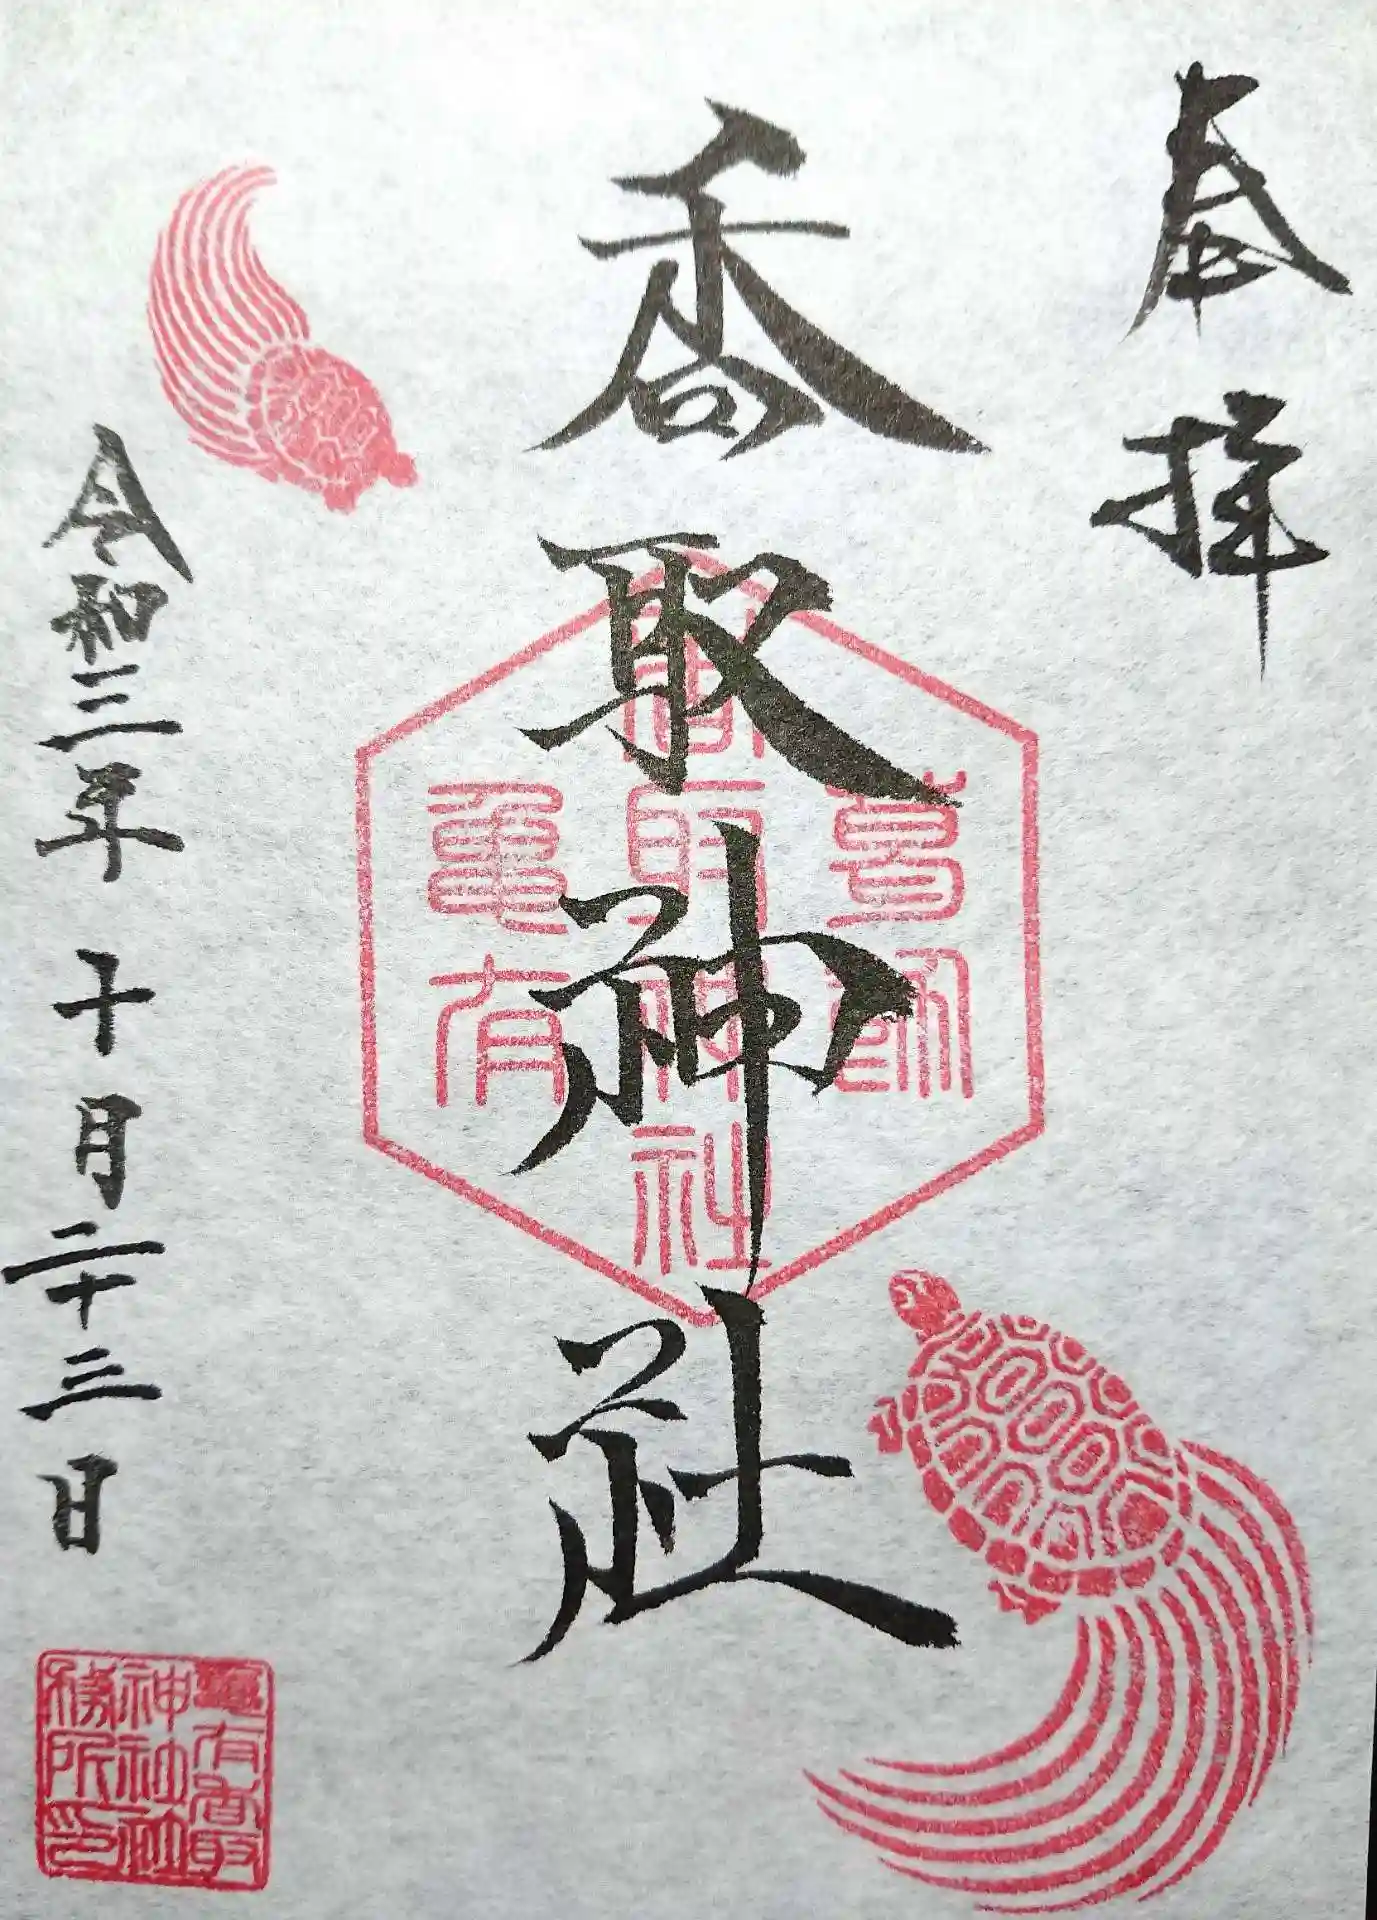 奉拝
香取神社
令和三年十月二十三日
香取神社
亀有
亀有香取
神社社
務所印